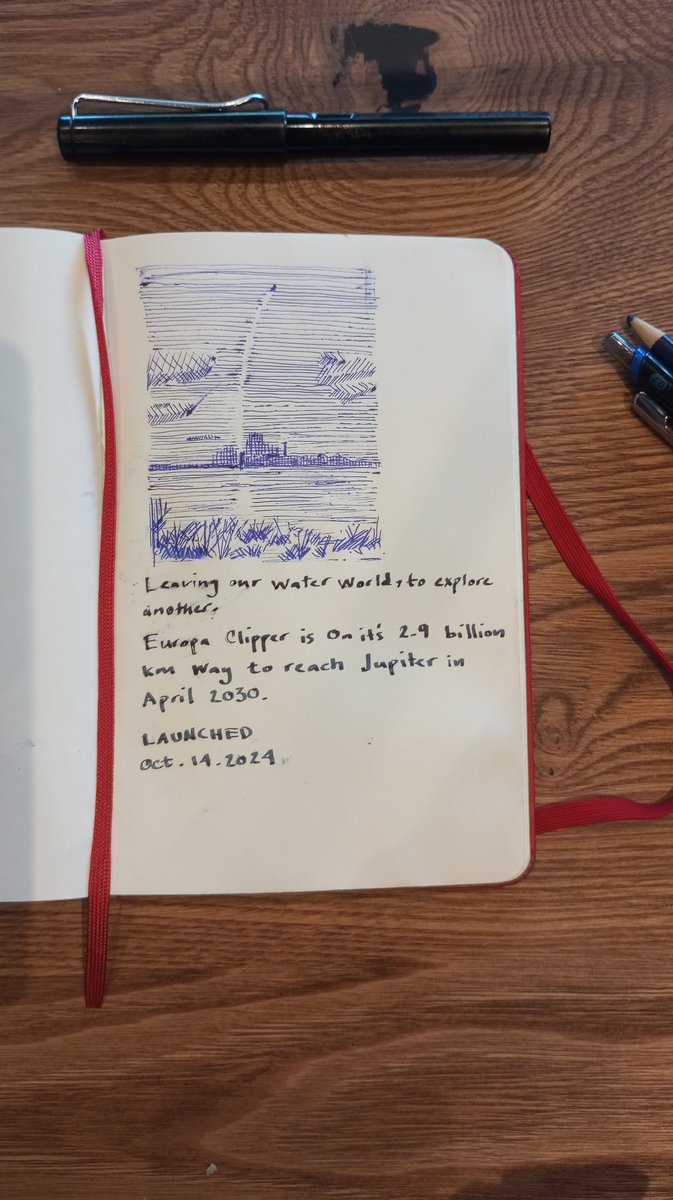 Leaving our water world, to explore
another.
Europa Clipper is on it's 2.9 billion
km way to reach Jupiter in
April 2030.
LAUNCHED
Oct. 14. 2024